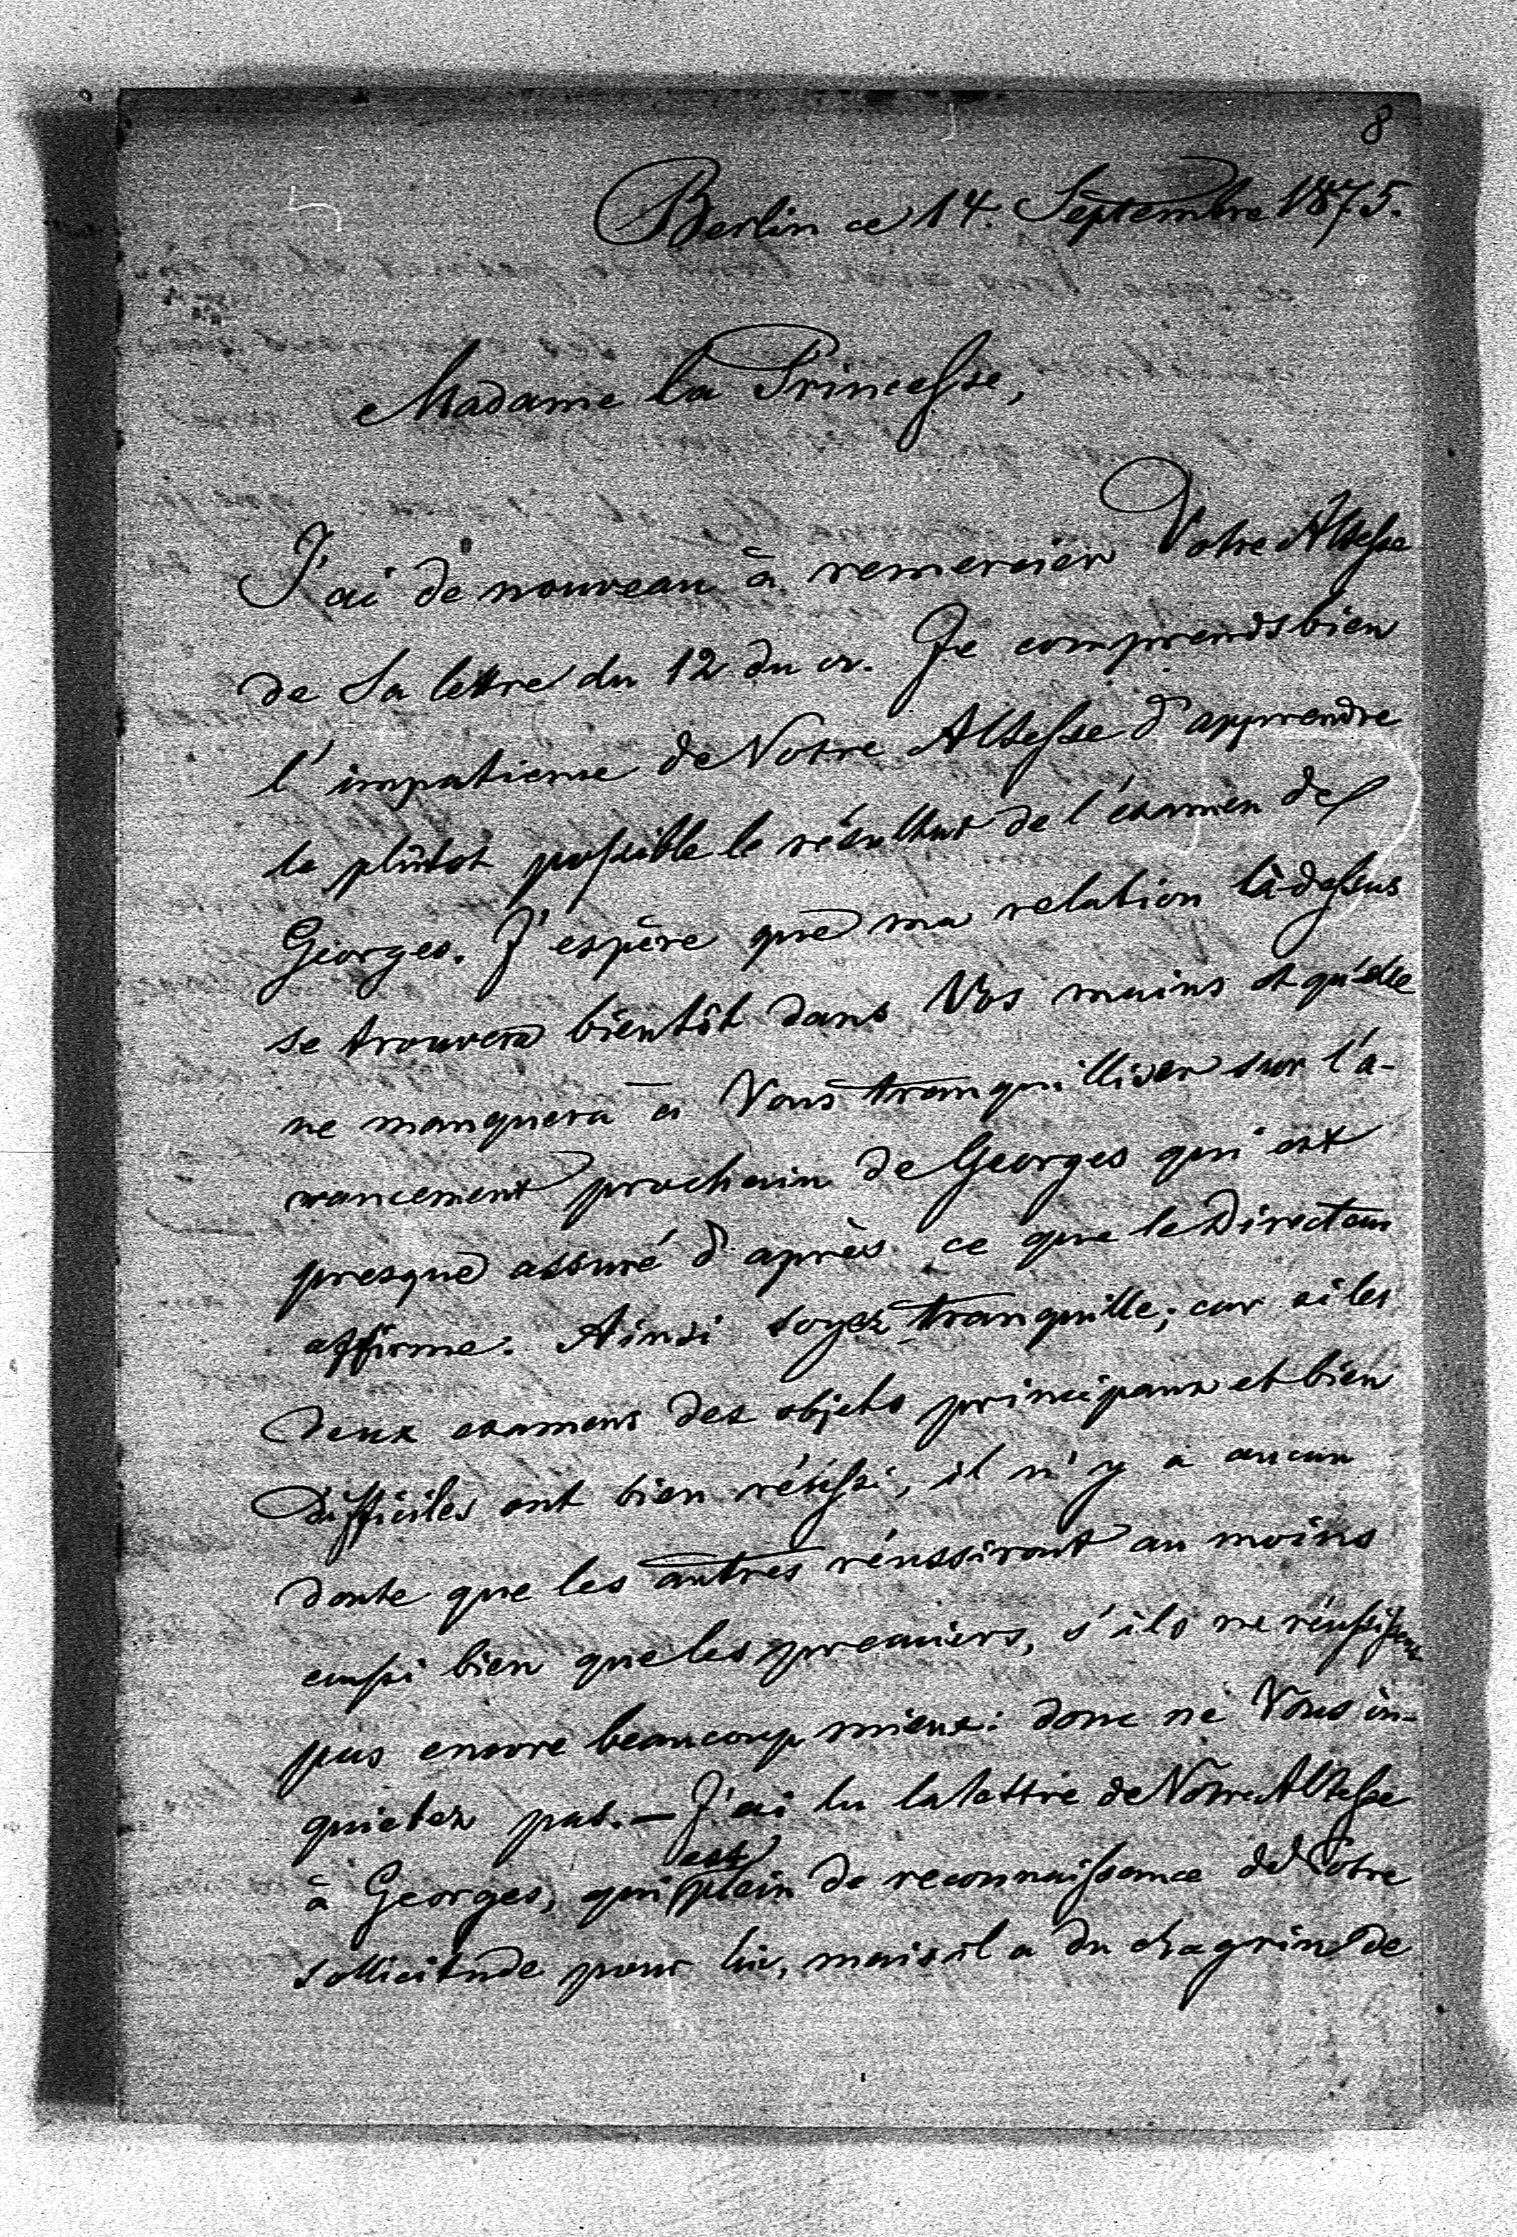 8
Berlin ce 14. Septembre 1875.
Madame la Princesse,
J'ai de nouveau à remercier Votre Altesse
de Sa lettre du 12 du cr. Je comprends bien
l'impatience de Votre Altesse d'apprendre
le plûtôt possible le résultat de l'éxamen de
Georges. J'espère que ma relation là-dessus
se trouvera bientôt dans Vos mains et qu'elle
ne manquera à Vous tranquilliser sur l'a-
vancement prochain de Georges qui est
presque assuré d'après ce que le Directeur
affirme. Ainsi soyez tranquille; car si les
deux examens des objets principaux et bien
difficiles ont bien réussi, il n'y a aucun
doute que les autres réussiront au moins
aussi bien que les premiers, s'ils ne réussissent
pas encore beaucoup mieux: donc ne Vous in-
quietez pas. — J'ai lu la lettre de Votre Altesse
à Georges, qui est plein de reconnaissance de Votre
sollicitude pour lui, mais il a du chagrin de